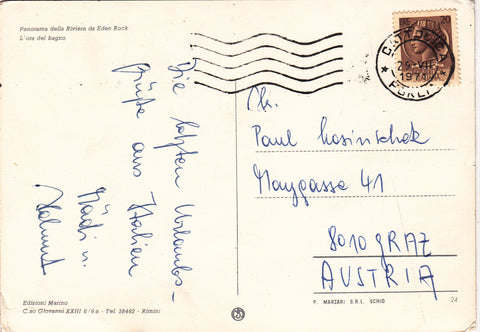 Panorama della Riviera da Eden Rock
L'ora del bagno
Die letzten Urlaubs-
grüße aus Italien
u.
Helmut
20
CATTOLICA
25-VII
1971
FORLI
Paul
Maygasse 41
8010 GRAZ
AUSTRIA
Edizioni Marino
C.so Giovanni XXIII 6/6a - Tel. 26462 - Rimini
P. MARZARI S.R.L. SCHIO
24